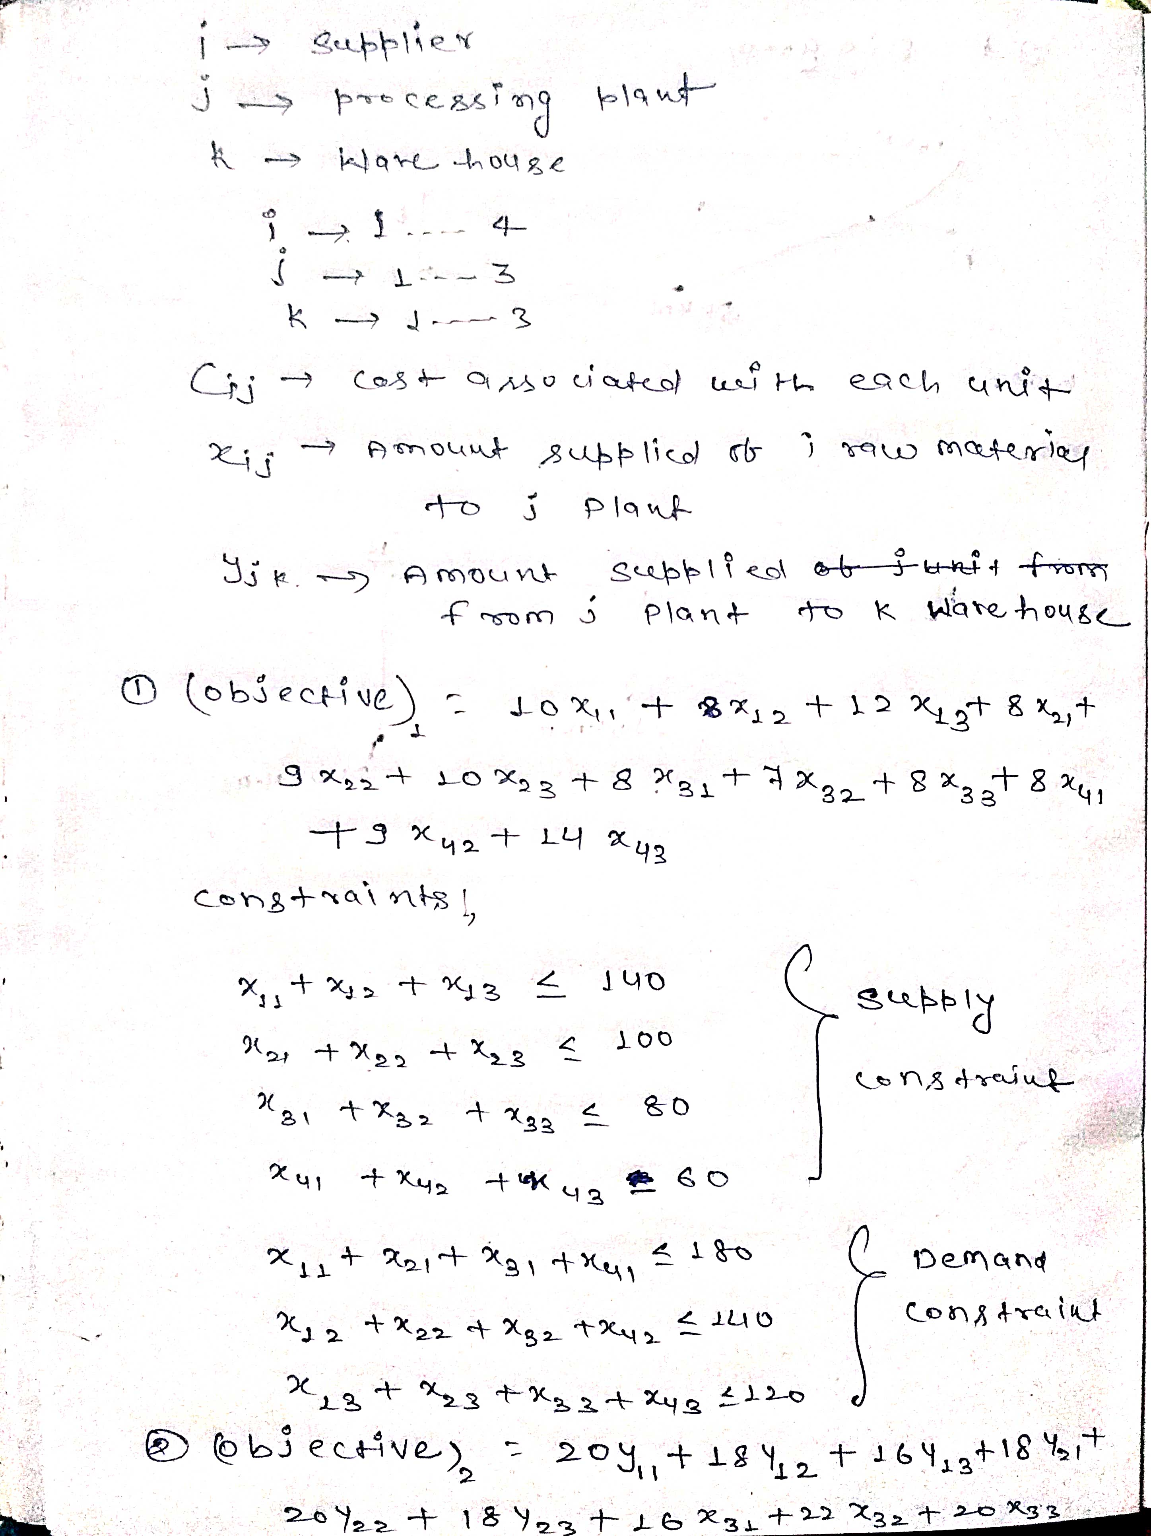 i → supplier
j → processing plant
k → Ware house
i → 1 .... 4
j → 1 --- 3
k → 1 ---- 3
Cij → cost associated with each unit
xij → Amount supplied of i raw material
to j plant
yjk → Amount supplied of j unit from
from j plant to k Ware house
① (objective)₁ = 10x₁₁ + 8x₁₂ + 12x₁₃ + 8x₂₁ +
9x₂₂ + 10x₂₃ + 8x₃₁ + 7x₃₂ + 8x₃₃ + 8x₄₁
+ 9x₄₂ + 14x₄₃
constraints,
x₁₁ + x₁₂ + x₁₃ ≤ 140
supply
x₂₁ + x₂₂ + x₂₃ ≤ 100
constraint
x₃₁ + x₃₂ + x₃₃ ≤ 80
x₄₁ + x₄₂ + x₄₃ ≤ 60
x₁₁ + x₂₁ + x₃₁ + x₄₁ ≤ 180
Demand
x₁₂ + x₂₂ + x₃₂ + x₄₂ ≤ 140
constraint
x₁₃ + x₂₃ + x₃₃ + x₄₃ ≤ 120
② (objective)₂ = 20y₁₁ + 18y₁₂ + 16y₁₃ + 18y₂₁ +
20y₂₂ + 18y₂₃ + 16x₃₁ + 22x₃₂ + 20x₃₃